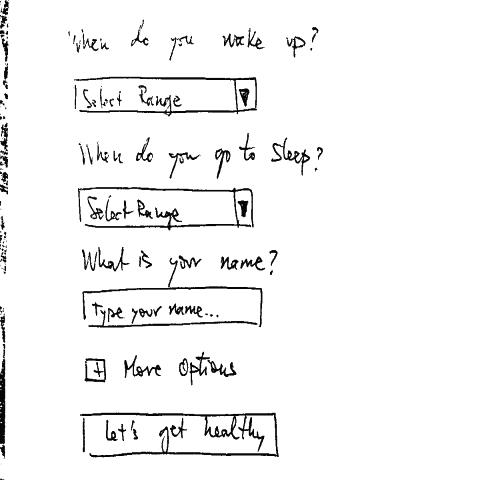 When do you wake up?
Select Range
When do you go to Sleep?
Select Range
What is your name?
Type your name...
+ More Options
Let's get healthy